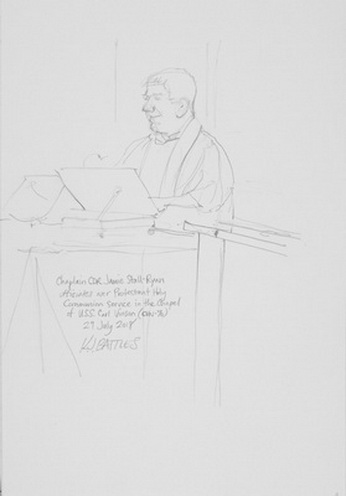 Chaplain CDR Jamie Stall-Ryan
officiates over Protestant Holy
Communion Service in the Chapel
of USS Carl Vinson (CVN-70)
29 July 2018
KJ BATTLES